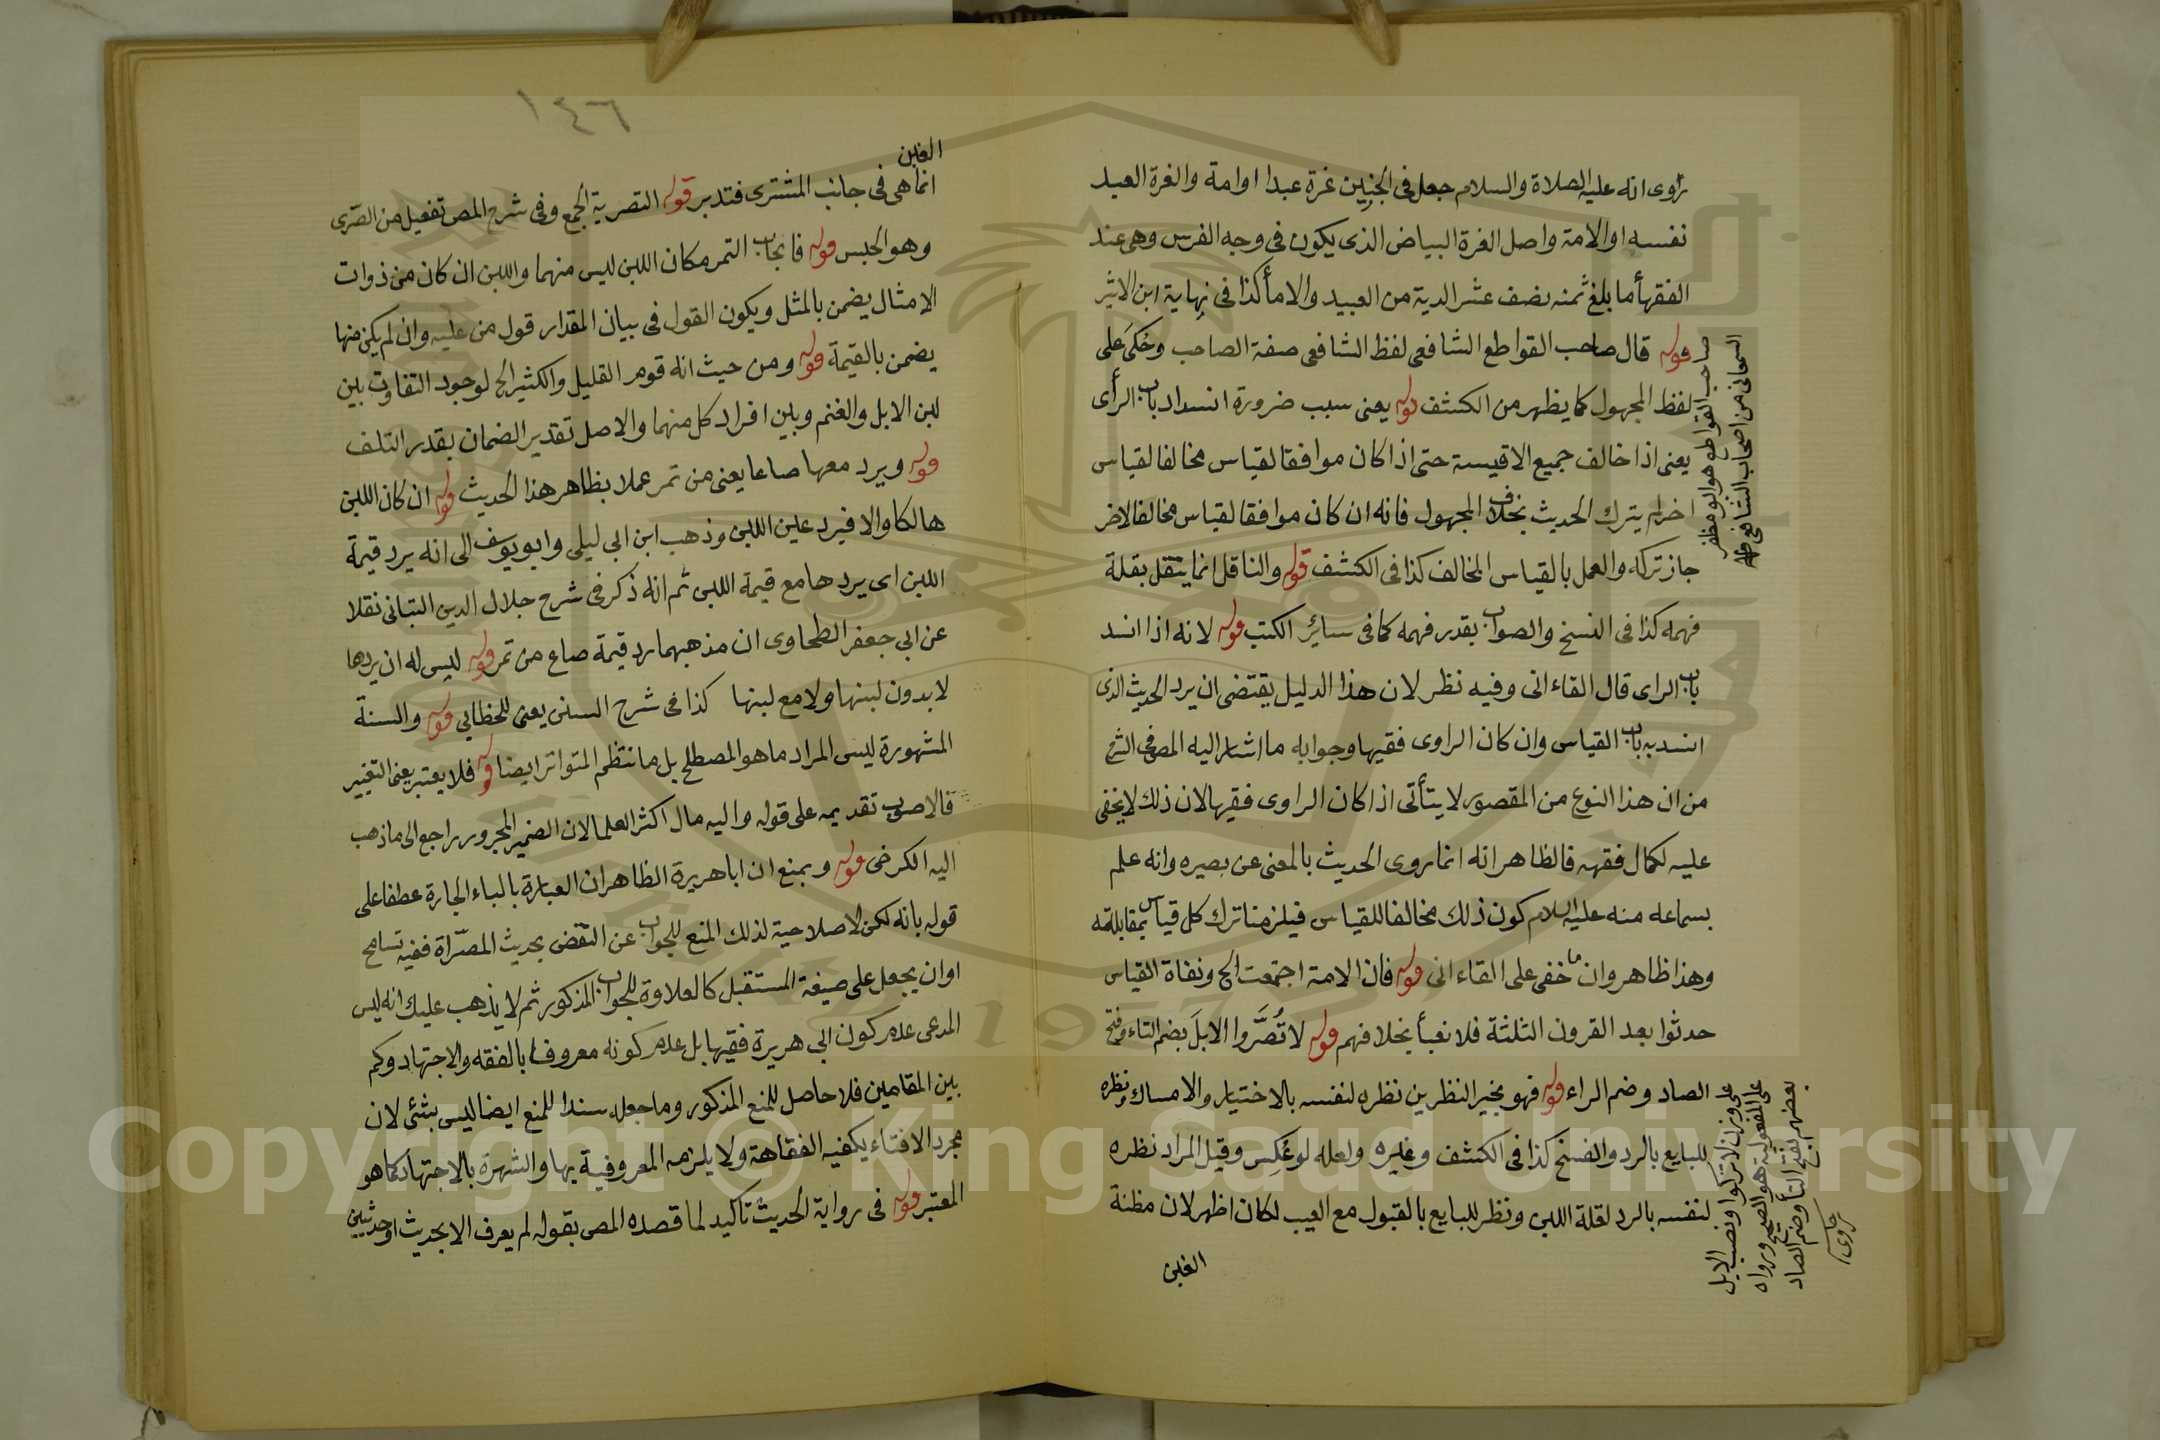 روى انه عليه الصلاة والسلام جعل فى الجنين غرة عبدا او امة والغرة العبد
نفسه او الامة واصل الغرة البياض الذى يكون فى وجه الفرس وهى عند
الفقهأ ما بلغ ثمنه نصف عشر الدية من العبيد والامأ كذا فى نهاية ابن الاثير
قوله قال صاحب القواطع الشافعى لفظ الشافعى صفة الصاحب وحكى على
لفظ المجهول كما يظهر من الكشف قوله يعنى سبب ضرورة انسداد باب الرأى
يعنى اذا خالف جميع الاقيسة حتى اذا كان موافقا لقياس مخالفا لقياس
اخر لم يترك الحديث بخلاف المجهول فانه ان كان موافقا لقياس مخالفا لاخر
جاز تركه والعمل بالقياس المخالف كذا فى الكشف قوله والناقل انما ينقل بقلة
فهمه كذا فى النسخ والصواب بقدر فهمه كما فى سائر الكتب قوله لانه اذا انسد
باب الراى قال القاءانى وفيه نظر لان هذا الدليل يقتضى ان يرد الحديث الذى
انسد به باب القياس وان كان الراوى فقيها وجوابه ما اشار اليه المص فى الشرح
من ان هذا النوع من المقصور لا يتأتى اذا كان الراوى فقيها لان ذلك لا يخفى
عليه لكمال فقهه فالظاهر انه انما روى الحديث بالمعنى عن بصيره وانه علم
بسماعه منه عليه السلام كون ذلك مخالفا للقياس فيلزمنا ترك كل قياس بمقابلته
وهذا ظاهر وان ما خفى على القاءانى قوله فان الامة اجتمعت الخ ونفاة القياس
حدثوا بعد القرون الثلثة فلا نعبأ بخلافهم قوله لا تُصَرُّوا الابلَ بضم التاء وفتح
الصاد وضم الراء قوله فهو بخير النظرين نظره لنفسه بالاختيار والامساك ونظره
للبايع بالرد والفسخ كذا فى الكشف وغيره ولعله لو عُكِس وقيل المراد نظره
لنفسه بالرد لقلة اللبن ونظر للبايع بالقبول مع العيب لكان اظهر لان مظنة
الغبن
صاحب القواطع هو ابو مظفر
السمعانى من اصحاب الشافعى
على وزن لا تزكوا ونصب الابل
على المفعولية هو الصحيح ورواه
بعضهم بفتح التأ وضم الصاد
١٤٦
الغبن
انما هى فى جانب المشترى فتدبر قوله التصرية الجمع وفى شرح المص تفعيل من الصرى
وهو الحبس قوله فايجاب التمر مكان اللبن ليس منهما واللبن ان كان من ذوات
الامثال يضمن بالمثل ويكون القول فى بيان المقدار قول من عليه وان لم يكن منها
يضمن بالقيمة قوله ومن حيث انه قوم القليل والكثير الخ لوجود التفاوت بين
لبن الابل والغنم وبين افراد كل منهما والاصل تقدير الضمان بقدر التلف
قوله ويرد معها صاعا يعنى من تمر عملا بظاهر هذا الحديث قوله ان كان اللبن
هالكا والا فيرد عين اللبن وذهب ابن ابى ليلى وابو يوسف الى انه يرد قيمة
اللبن اى يردها مع قيمة اللبن ثم انه ذكر فى شرح جلال الدين التبانى نقلا
عن ابى جعفر الطحاوى ان مذهبهما رد قيمة صاع من تمر قوله ليس له ان يردها
لا بدون لبنها ولا مع لبنها كذا فى شرح السنن يعنى للخطابى قوله والسنة
المشهورة ليس المراد ما هو المصطلح بل ما ينتظم المتواتر ايضا قوله فلا يعتبر يعنى التغيير
فالاصوب تقديمه على قوله واليه مال اكثر العلما لان الضمير المجرور راجع الى ما ذهب
اليه الكرخى قوله ويمنع ان ابا هريرة الظاهر ان العبارة بالباء الجارة عطفا على
قوله بانه لكن لا صلاحية لذلك المنع للجواب عن النقض بحديث المصرّاة ففيه تسامح
او ان يجعل على صيغة المستقبل كالعلاوة للجواب المذكور ثم لا يذهب عليك انه ليس
المدعى عدم كون ابى هريرة فقيها بل عدم كونه معروفا بالفقه والاجتهاد وكم
بين المقامين فلا حاصل للمنع المذكور وما جعله سندا للمنع ايضا ليس بشئ لان
مجرد الافتاء يكفيه الفقاهة ولا يلزمه المعروفية بها والشهرة بالاجتهاد كما هو
المعتبر قوله فى رواية الحديث تأكيد لما قصده المص بقوله لم يعرف الا بحديث او حديثين
Copyright © King Saud University
1957